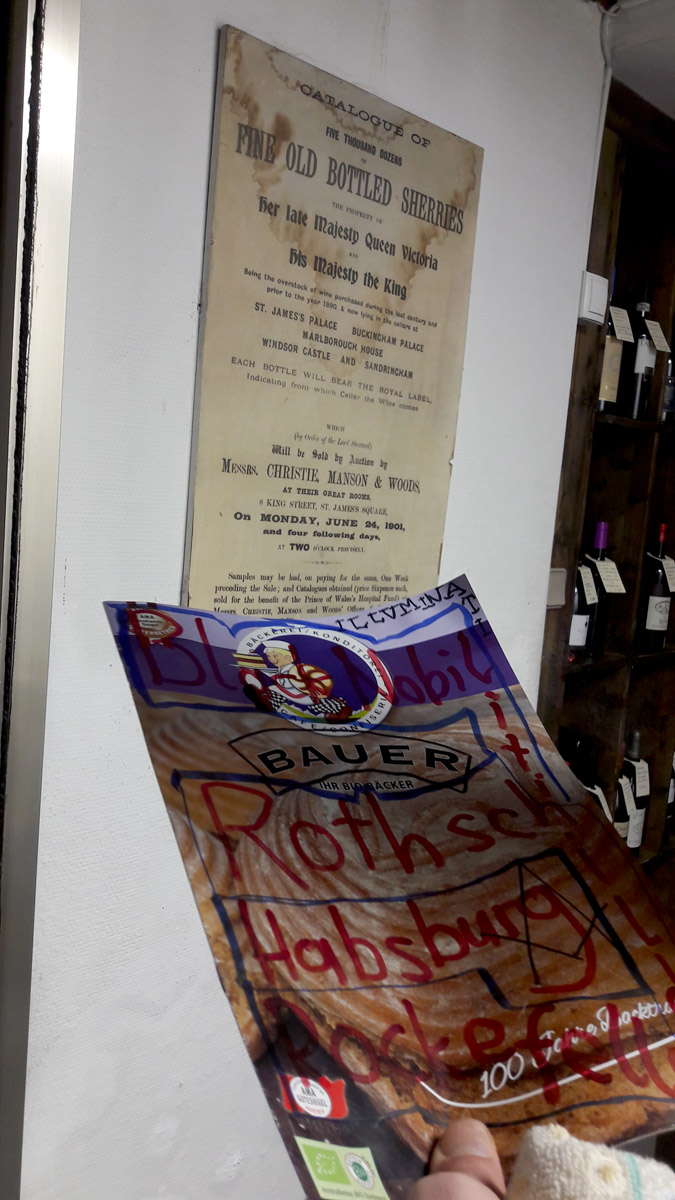 CATALOGUE OF
FIVE THOUSAND DOZENS
OF
FINE OLD BOTTLED SHERRIES
THE PROPERTY OF
Her late Majesty Queen Victoria
AND
His Majesty the King
Being the overstock of wine purchased during the last century and
prior to the year 1890, & now lying in the cellars at
ST. JAMES'S PALACE BUCKINGHAM PALACE
MARLBOROUGH HOUSE
WINDSOR CASTLE AND SANDRINGHAM
EACH BOTTLE WILL BEAR THE ROYAL LABEL,
Indicating from which Cellar the Wine comes
WHICH
(by Order of the Lord Steward)
Will be Sold by Auction by
MESSRS. CHRISTIE, MANSON & WOODS,
AT THEIR GREAT ROOMS,
8 KING STREET, ST. JAMES'S SQUARE,
On MONDAY, JUNE 24, 1901,
and four following days,
AT TWO O'CLOCK PRECISELY.
Samples may be had, on paying for the same, One Week
preceding the Sale; and Catalogues obtained (price Sixpence each,
sold for the benefit of the Prince of Wales's Hospital Fund)
MESSRS. CHRISTIE, MANSON and WOODS'
ILLUMINATI
Black Nobility
BÄCKEREI/KONDITOREI
BAUER
IHR BIO BÄCKER
Rothschild
Habsburg
Rockefell
100 Jahre
AMA
GÜTESIEGEL